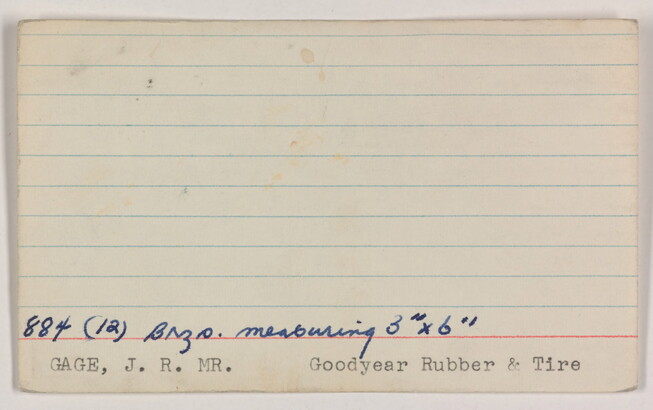 884 (12) Brzo. measuring 3" x 6"
GAGE, J. R. MR. Goodyear Rubber & Tire